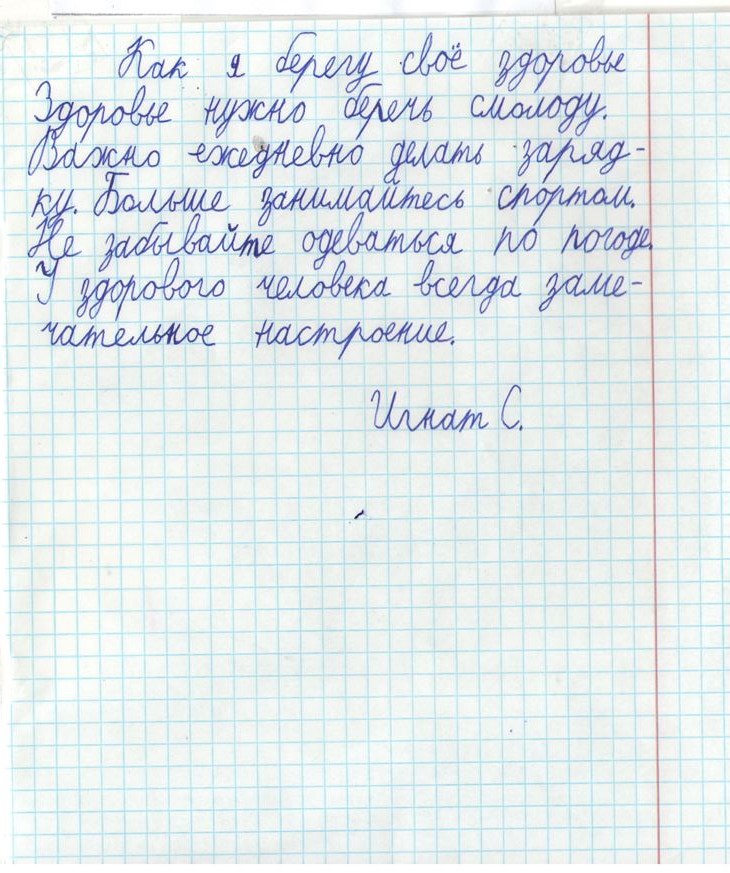 Как я берегу своё здоровье
Здоровье нужно беречь смолоду.
Важно ежедневно делать заряд-
ку. Больше занимайтесь спортом.
Не забывайте одеваться по погоде.
У здорового человека всегда заме-
чательное настроение.
Игнат С.